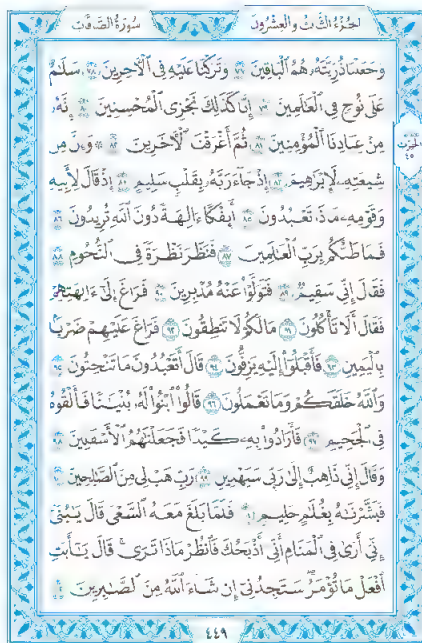 الجزء الثالث والعشرون سورة الصافات
وَجَعَلْنَا ذُرِّيَّتَهُۥ هُمُ ٱلْبَاقِينَ ٧٧ وَتَرَكْنَا عَلَيْهِ فِى ٱلْـَٔاخِرِينَ ٧٨ سَلَـٰمٌ
عَلَىٰ نُوحٍ فِى ٱلْعَـٰلَمِينَ ٧٩ إِنَّا كَذَٰلِكَ نَجْزِى ٱلْمُحْسِنِينَ ٨٠ إِنَّهُۥ
مِنْ عِبَادِنَا ٱلْمُؤْمِنِينَ ٨١ ثُمَّ أَغْرَقْنَا ٱلْـَٔاخَرِينَ ٨٢ وَإِنَّ مِن
شِيعَتِهِۦ لَإِبْرَٰهِيمَ ٨٣ إِذْ جَآءَ رَبَّهُۥ بِقَلْبٍ سَلِيمٍ ٨٤ إِذْ قَالَ لِأَبِيهِ
وَقَوْمِهِۦ مَاذَا تَعْبُدُونَ ٨٥ أَئِفْكًا ءَالِهَةً دُونَ ٱللَّهِ تُرِيدُونَ ٨٦
فَمَا ظَنُّكُم بِرَبِّ ٱلْعَـٰلَمِينَ ٨٧ فَنَظَرَ نَظْرَةً فِى ٱلنُّجُومِ ٨٨
فَقَالَ إِنِّى سَقِيمٌ ٨٩ فَتَوَلَّوْا۟ عَنْهُ مُدْبِرِينَ ٩٠ فَرَاغَ إِلَىٰٓ ءَالِهَتِهِمْ
فَقَالَ أَلَا تَأْكُلُونَ ٩١ مَا لَكُمْ لَا تَنطِقُونَ ٩٢ فَرَاغَ عَلَيْهِمْ ضَرْبًۢا
بِٱلْيَمِينِ ٩٣ فَأَقْبَلُوٓا۟ إِلَيْهِ يَزِفُّونَ ٩٤ قَالَ أَتَعْبُدُونَ مَا تَنْحِتُونَ ٩٥
وَٱللَّهُ خَلَقَكُمْ وَمَا تَعْمَلُونَ ٩٦ قَالُوا۟ ٱبْنُوا۟ لَهُۥ بُنْيَـٰنًا فَأَلْقُوهُ
فِى ٱلْجَحِيمِ ٩٧ فَأَرَادُوا۟ بِهِۦ كَيْدًا فَجَعَلْنَـٰهُمُ ٱلْأَسْفَلِينَ ٩٨
وَقَالَ إِنِّى ذَاهِبٌ إِلَىٰ رَبِّى سَيَهْدِينِ ٩٩ رَبِّ هَبْ لِى مِنَ ٱلصَّـٰلِحِينَ ١٠٠
فَبَشَّرْنَـٰهُ بِغُلَـٰمٍ حَلِيمٍ ١٠١ فَلَمَّا بَلَغَ مَعَهُ ٱلسَّعْىَ قَالَ يَـٰبُنَىَّ
إِنِّىٓ أَرَىٰ فِى ٱلْمَنَامِ أَنِّىٓ أَذْبَحُكَ فَٱنظُرْ مَاذَا تَرَىٰ ۚ قَالَ يَـٰٓأَبَتِ
ٱفْعَلْ مَا تُؤْمَرُ ۖ سَتَجِدُنِىٓ إِن شَآءَ ٱللَّهُ مِنَ ٱلصَّـٰبِرِينَ ١٠٢
٤٤٩